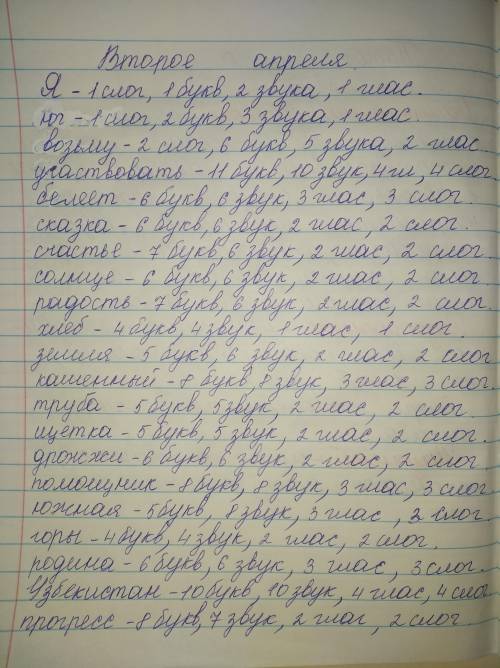 Второе апреля.
Я - 1 слог, 1 букв, 2 звука, 1 глас.
мы - 1 слог, 2 букв, 3 звука, 1 глас.
возьму - 2 слог, 6 букв, 5 звука, 2 глас.
участвовать - 11 букв, 10 звук, 4 гл, 4 слог
белеет - 6 букв, 6 звук, 3 глас, 3 слог.
сказка - 6 букв, 6 звук, 2 глас, 2 слог.
счастье - 7 букв, 6 звук, 2 глас, 2 слог.
солнце - 6 букв, 6 звук, 2 глас, 2 слог.
радость - 7 букв, 6 звук, 2 глас, 2 слог.
хлеб - 4 букв, 4 звук, 1 глас, 1 слог.
земля - 5 букв, 6 звук, 2 глас, 2 слог
каменный - 8 букв, 8 звук, 3 глас, 3 слог.
труба - 5 букв, 5 звук, 2 глас, 2 слог.
щетка - 5 букв, 5 звук, 2 глас, 2 слог.
дрожжи - 6 букв, 6 звук, 2 глас, 2 слог.
помощник - 8 букв, 8 звук, 3 глас, 3 слог
южная - 5 букв, 8 звук, 3 глас, 2 слог.
горы - 4 букв, 4 звук, 2 глас, 2 слог.
родина - 6 букв, 6 звук, 3 глас, 3 слог.
Узбекистан - 10 букв, 10 звук, 4 глас, 4 слог
прогресс - 8 букв, 7 звук, 2 глас, 2 слог